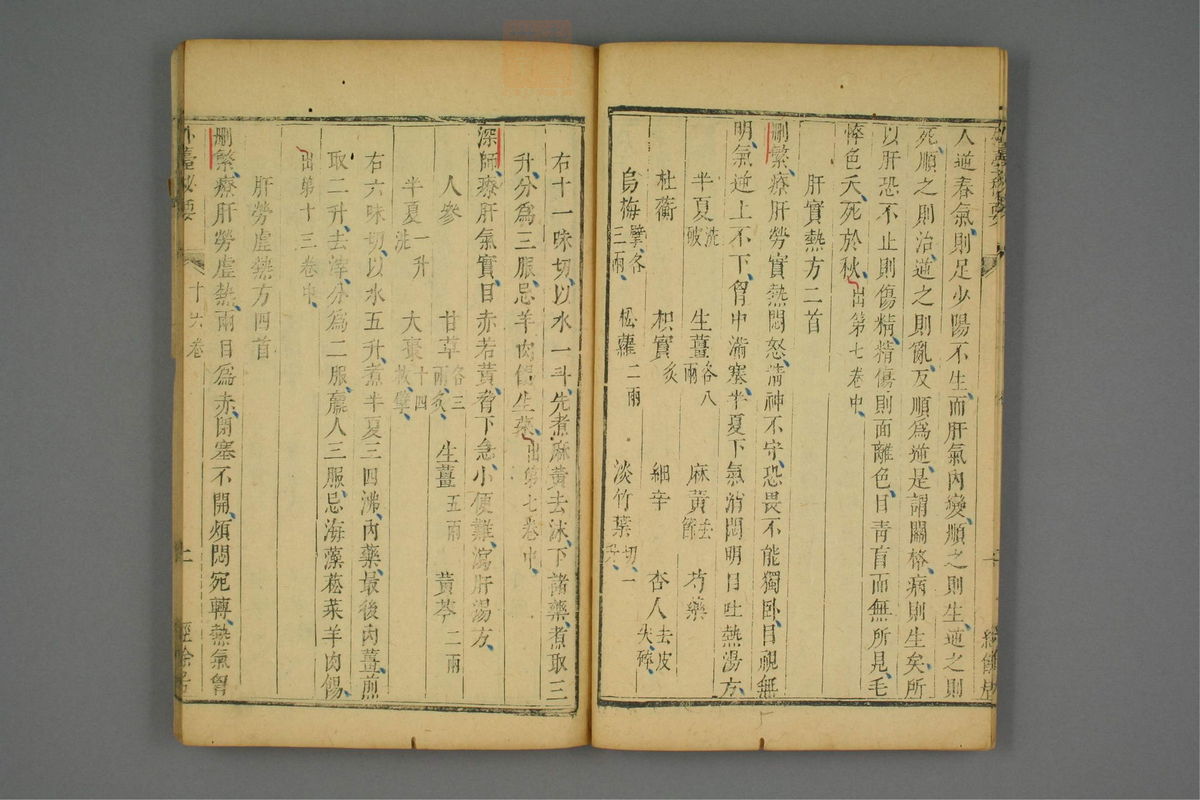 人逆春氣則足少陽不生而肝氣內變順之則生逆之則
死順之則治逆之則亂反順爲逆是謂關格病則生矣所
以肝恐不止則傷精精傷則面離色目青盲而無所見毛
悴色夭死於秋出第七卷中
肝實熱方二首
刪繁療肝勞實熱悶怒精神不守恐畏不能獨臥目視無
明氣逆上不下胷中滿塞半夏下氣消悶明目吐熱湯方
半夏洗破 生薑各八兩 麻黃去節 芍藥 杏人去皮尖碎
杜蘅 枳實炙 細辛
烏梅擘各三兩 松蘿二兩 淡竹葉切一升
右十一味切以水一斗先煮麻黃去沫下諸藥煮取三
升分爲三服忌羊肉餳生菜出第七卷中
深師療肝氣實目赤若黃脅下急小便難瀉肝湯方
人參 甘草各三兩炙 生薑五兩 黃芩二兩
半夏一升洗 大棗十四枚擘
右六味切以水五升煮半夏三四沸內藥最後內薑煎
取二升去滓分爲二服羸人三服忌海藻菘菜羊肉餳
出第十三卷中
肝勞虛熱方四首
刪繁療肝勞虛熱兩目爲赤閉塞不開煩悶宛轉熱氣胷
外臺秘要 十六卷 上 經餘居